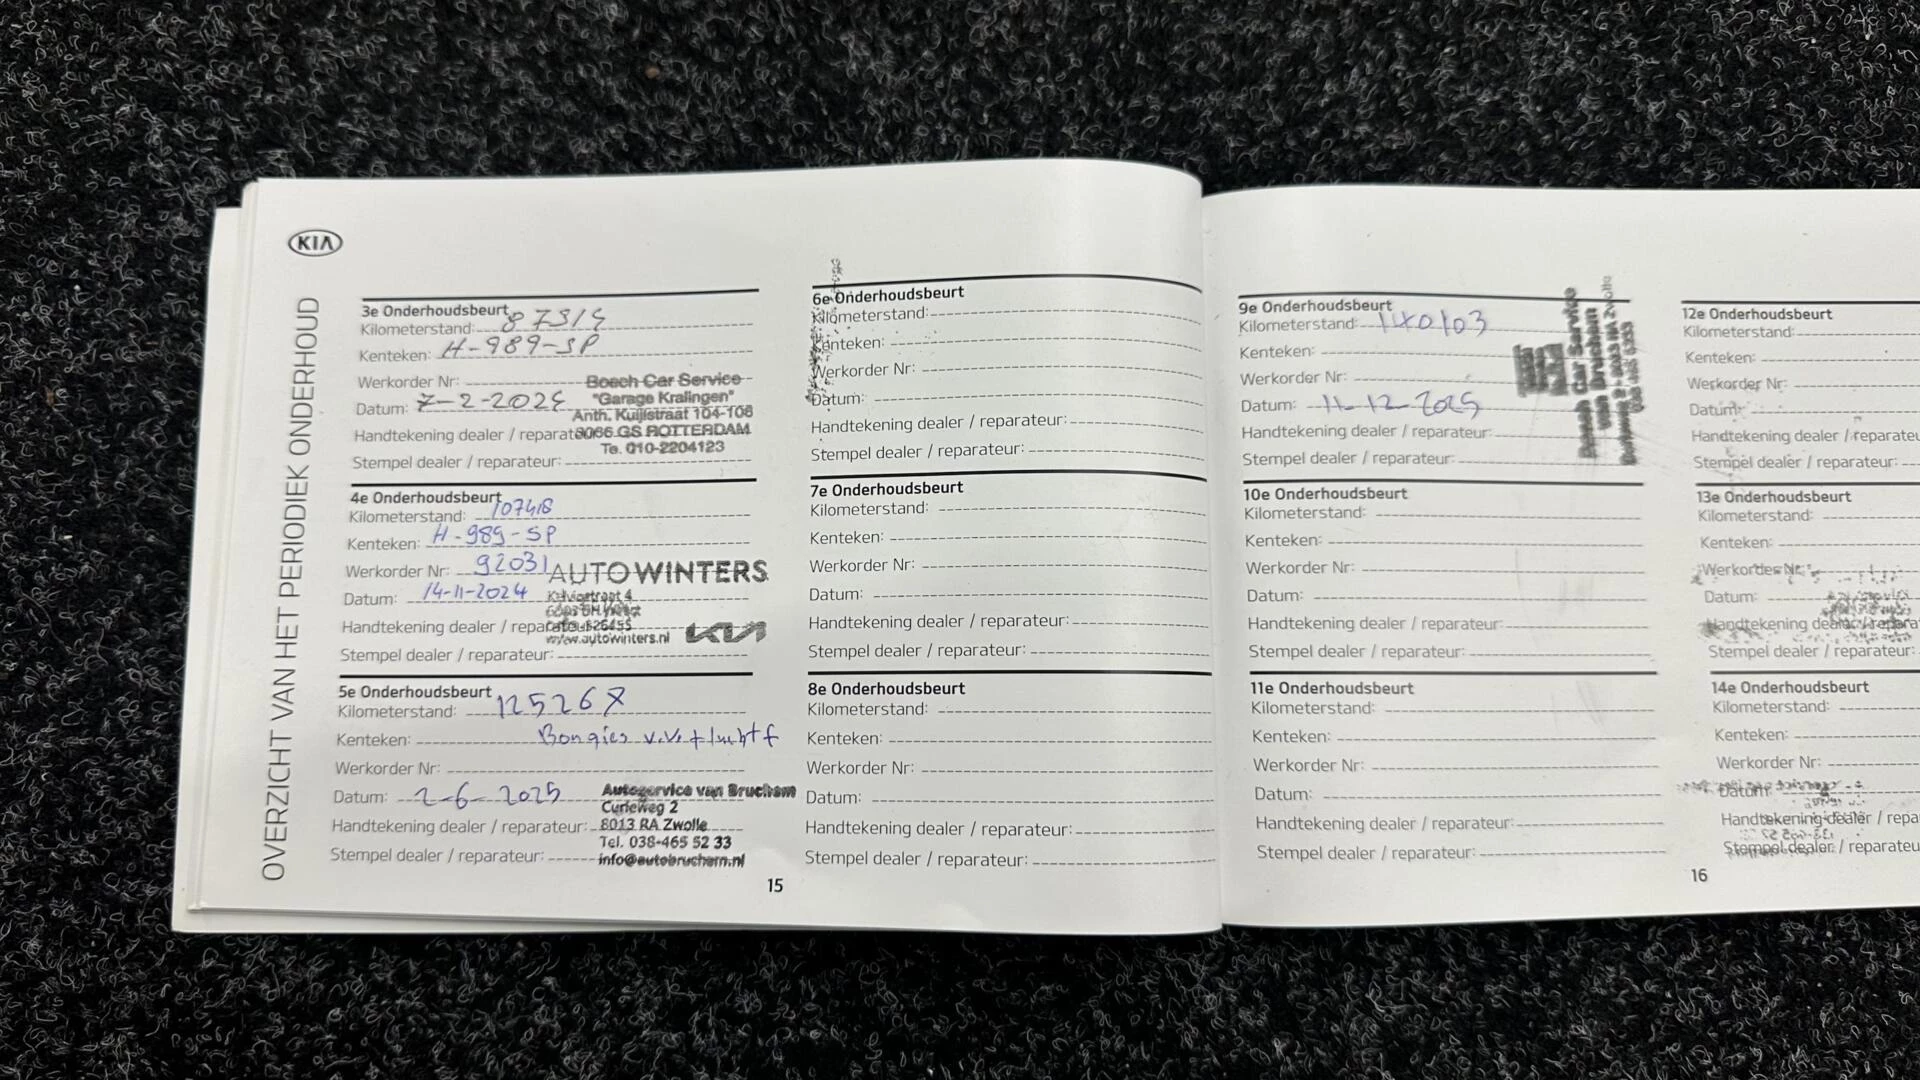 KIA
OVERZICHT VAN HET PERIODIEK ONDERHOUD
3e Onderhoudsbeurt
Kilometerstand: 87314
Kenteken: H-989-SP
Werkorder Nr:
Datum: 7-2-2024
Handtekening dealer / reparateur:
Stempel dealer / reparateur:
Bosch Car Service
"Garage Kralingen"
Anth. Kuijlstraat 104-106
GS ROTTERDAM
Te. 010-2204123
4e Onderhoudsbeurt
Kilometerstand: 107418
Kenteken: H-989-SP
Werkorder Nr: 92031
Datum: 14-11-2024
Handtekening dealer / reparateur:
Stempel dealer / reparateur:
AUTOWINTERS
www.autowinters.nl
KIA
5e Onderhoudsbeurt
Kilometerstand: 125267
Kenteken:
Bougies
Werkorder Nr:
Datum: 2-6-2025
Handtekening dealer / reparateur:
Stempel dealer / reparateur:
Autoservice van Bruchem
Curieweg 2
8013 RA Zwolle
Tel. 038-465 52 33
info@autobruchem.nl
15
6e Onderhoudsbeurt
Kilometerstand:
Kenteken:
Werkorder Nr:
Datum:
Handtekening dealer / reparateur:
Stempel dealer / reparateur:
7e Onderhoudsbeurt
Kilometerstand:
Kenteken:
Werkorder Nr:
Datum:
Handtekening dealer / reparateur:
Stempel dealer / reparateur:
8e Onderhoudsbeurt
Kilometerstand:
Kenteken:
Werkorder Nr:
Datum:
Handtekening dealer / reparateur:
Stempel dealer / reparateur:
9e Onderhoudsbeurt
Kilometerstand: 140103
Kenteken:
Werkorder Nr:
Datum: 11-12-2025
Handtekening dealer / reparateur:
Stempel dealer / reparateur:
Bosch Car Service
van Bruchem
10e Onderhoudsbeurt
Kilometerstand:
Kenteken:
Werkorder Nr:
Datum:
Handtekening dealer / reparateur:
Stempel dealer / reparateur:
11e Onderhoudsbeurt
Kilometerstand:
Kenteken:
Werkorder Nr:
Datum:
Handtekening dealer / reparateur:
Stempel dealer / reparateur:
16
12e Onderhoudsbeurt
Kilometerstand:
Kenteken:
Werkorder Nr:
Datum:
Handtekening dealer / reparateu
Stempel dealer / reparateur:
13e Onderhoudsbeurt
Kilometerstand:
Kenteken:
Werkorder Nr:
Datum:
Handtekening dealer / repara
Stempel dealer / reparateur:
14e Onderhoudsbeurt
Kilometerstand:
Kenteken:
Werkorder Nr:
Datum:
Handtekening dealer / repa
Stempel dealer / reparateu